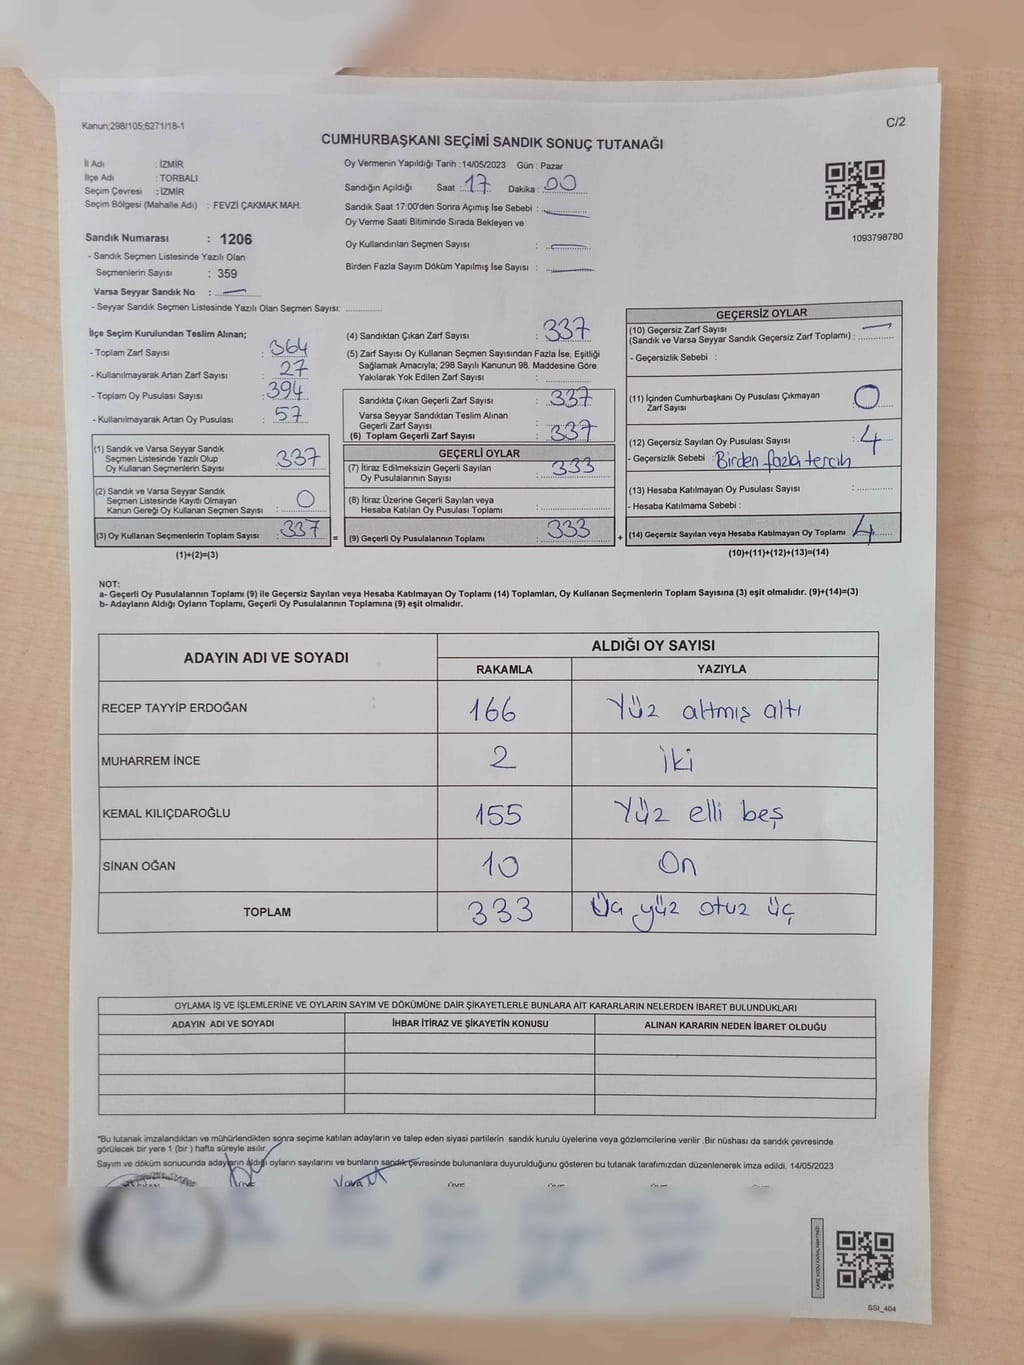 Kanun;298/105;6271/18-1
C/2
CUMHURBAŞKANI SEÇİMİ SANDIK SONUÇ TUTANAĞI
İl Adı : İZMİR
İlçe Adı : TORBALI
Seçim Çevresi : İZMİR
Seçim Bölgesi (Mahalle Adı) : FEVZİ ÇAKMAK MAH.
Sandık Numarası : 1206
- Sandık Seçmen Listesinde Yazılı Olan
Seçmenlerin Sayısı : 359
Varsa Seyyar Sandık No :
- Seyyar Sandık Seçmen Listesinde Yazılı Olan Seçmen Sayısı:
Oy Vermenin Yapıldığı Tarih : 14/05/2023 Gün : Pazar
Sandığın Açıldığı Saat : 17 Dakika : 00
Sandık Saat 17:00'den Sonra Açılmış İse Sebebi :
Oy Verme Saati Bitiminde Sırada Bekleyen ve
Oy Kullandırılan Seçmen Sayısı :
Birden Fazla Sayım Döküm Yapılmış İse Sayısı :
1093798780
İlçe Seçim Kurulundan Teslim Alınan;
- Toplam Zarf Sayısı : 364
- Kullanılmayarak Artan Zarf Sayısı : 27
- Toplam Oy Pusulası Sayısı : 394
- Kullanılmayarak Artan Oy Pusulası : 57
(1) Sandık ve Varsa Seyyar Sandık
Seçmen Listesinde Yazılı Olup
Oy Kullanan Seçmenlerin Sayısı : 337
(2) Sandık ve Varsa Seyyar Sandık
Seçmen Listesinde Kayıtlı Olmayan
Kanun Gereği Oy Kullanan Seçmen Sayısı : 0
(3) Oy Kullanan Seçmenlerin Toplam Sayısı : 337
(1)+(2)=(3)
=
(4) Sandıktan Çıkan Zarf Sayısı : 337
(5) Zarf Sayısı Oy Kullanan Seçmen Sayısından Fazla İse, Eşitliği
Sağlamak Amacıyla; 298 Sayılı Kanunun 98. Maddesine Göre
Yakılarak Yok Edilen Zarf Sayısı :
Sandıkta Çıkan Geçerli Zarf Sayısı : 337
Varsa Seyyar Sandıktan Teslim Alınan
Geçerli Zarf Sayısı :
(6) Toplam Geçerli Zarf Sayısı : 337
GEÇERLİ OYLAR
(7) İtiraz Edilmeksizin Geçerli Sayılan
Oy Pusulalarının Sayısı : 333
(8) İtiraz Üzerine Geçerli Sayılan veya
Hesaba Katılan Oy Pusulası Toplamı :
(9) Geçerli Oy Pusulalarının Toplamı : 333
+
GEÇERSİZ OYLAR
(10) Geçersiz Zarf Sayısı
(Sandık ve Varsa Seyyar Sandık Geçersiz Zarf Toplamı) :
- Geçersizlik Sebebi :
(11) İçinden Cumhurbaşkanı Oy Pusulası Çıkmayan
Zarf Sayısı : 0
(12) Geçersiz Sayılan Oy Pusulası Sayısı : 4
- Geçersizlik Sebebi : Birden fazla tercih
(13) Hesaba Katılmayan Oy Pusulası Sayısı :
- Hesaba Katılmama Sebebi :
(14) Geçersiz Sayılan veya Hesaba Katılmayan Oy Toplamı : 4
(10)+(11)+(12)+(13)=(14)
NOT:
a- Geçerli Oy Pusulalarının Toplamı (9) ile Geçersiz Sayılan veya Hesaba Katılmayan Oy Toplamı (14) Toplamları, Oy Kullanan Seçmenlerin Toplam Sayısına (3) eşit olmalıdır. (9)+(14)=(3)
b- Adayların Aldığı Oyların Toplamı, Geçerli Oy Pusulalarının Toplamına (9) eşit olmalıdır.
ADAYIN ADI VE SOYADI
ALDIĞI OY SAYISI
RAKAMLA YAZIYLA
RECEP TAYYİP ERDOĞAN 166 Yüz altmış altı
MUHARREM İNCE 2 iki
KEMAL KILIÇDAROĞLU 155 Yüz elli beş
SİNAN OĞAN 10 On
TOPLAM 333 yüz otuz üç
OYLAMA İŞ VE İŞLEMLERİNE VE OYLARIN SAYIM VE DÖKÜMÜNE DAİR ŞİKAYETLERLE BUNLARA AİT KARARLARIN NELERDEN İBARET BULUNDUKLARI
ADAYIN ADI VE SOYADI İHBAR İTİRAZ VE ŞİKAYETİN KONUSU ALINAN KARARIN NEDEN İBARET OLDUĞU
"Bu tutanak imzalandıktan ve mühürlendikten sonra seçime katılan adayların ve talep eden siyasi partilerin sandık kurulu üyelerine veya gözlemcilerine verilir .Bir nüshası da sandık çevresinde
görülecek bir yere 1 (bir ) hafta süreyle asılır.
Sayım ve döküm sonucunda adayların aldığı oyların sayılarını ve bunların sandık çevresinde bulunanlara duyurulduğunu gösteren bu tutanak tarafımızdan düzenlenerek imza edildi. 14/05/2023
SSI_404